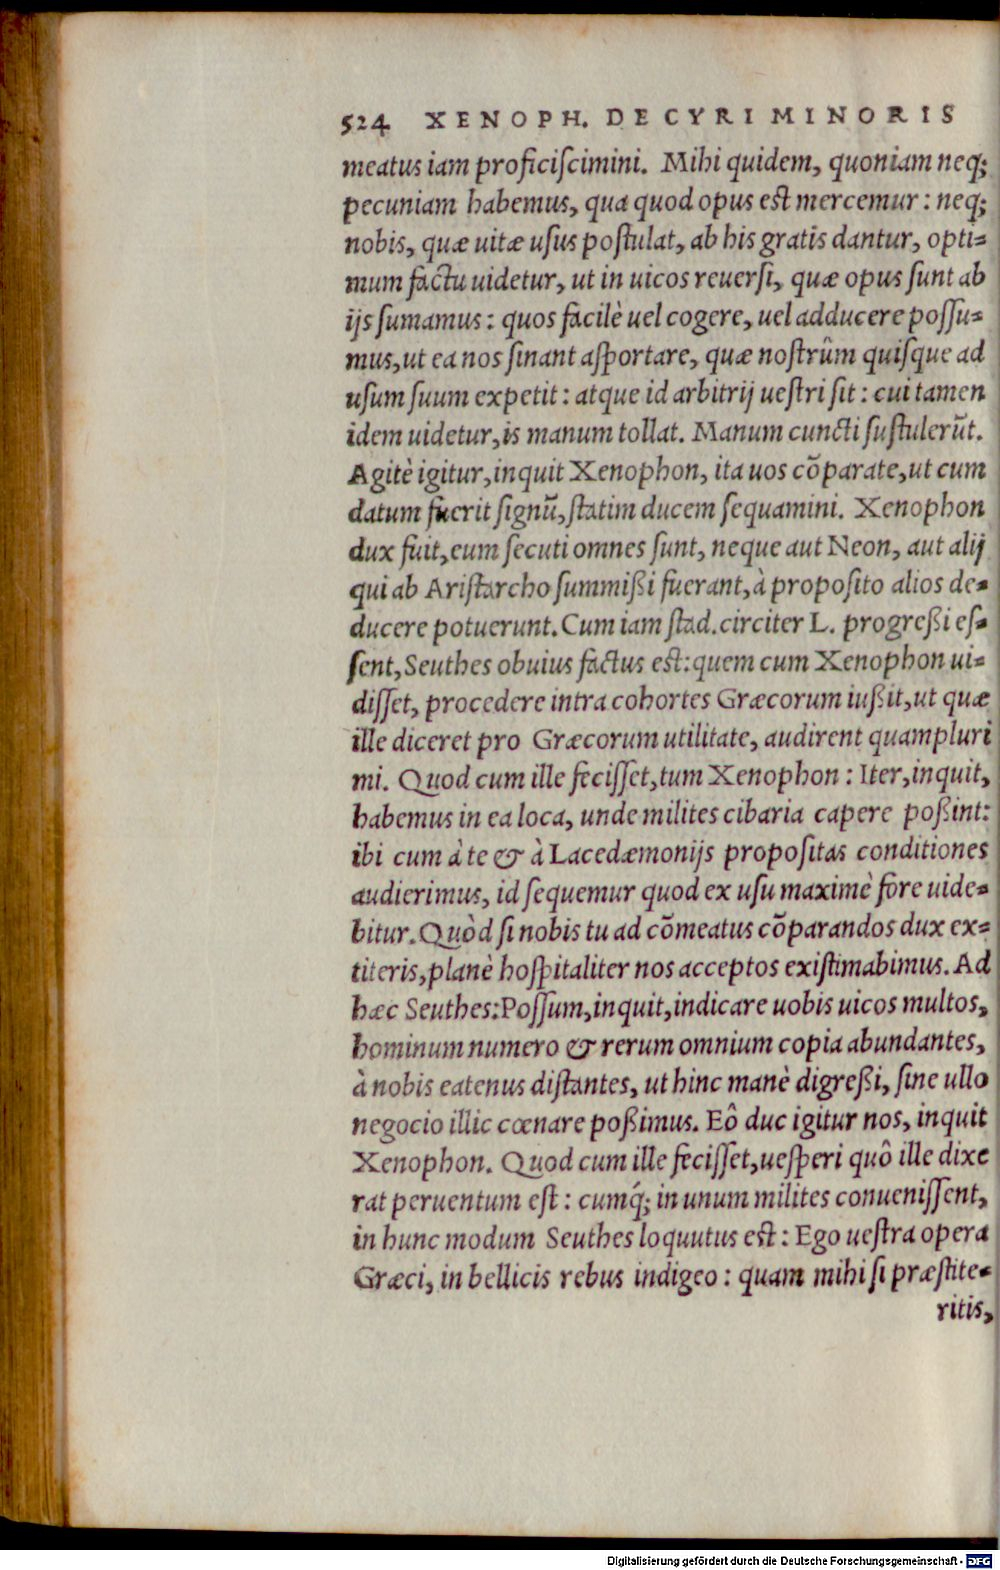 524 XENOPH. DE CYRI MINORIS
meatus iam proficiſcimini. Mihi quidem, quoniam neq;
pecuniam habemus, qua quod opus eſt mercemur: neq;
nobis, quæ uitæ uſus poſtulat, ab his gratis dantur, opti-
mum factu uidetur, ut in uicos reuerſi, quæ opus ſunt ab
ijs ſumamus: quos facilè uel cogere, uel adducere poſſu-
mus, ut ea nos ſinant aſportare, quæ noſtrûm quiſque ad
uſum ſuum expetit: atque id arbitrij ueſtri ſit: cui tamen
idem uidetur, is manum tollat. Manum cuncti ſuſtulerūt.
Agitè igitur, inquit Xenophon, ita uos cōparate, ut cum
datum fuerit ſignū, ſtatim ducem ſequamini. Xenophon
dux fuit, eum ſecuti omnes ſunt, neque aut Neon, aut alij
qui ab Ariſtarcho ſummißi fuerant, à propoſito alios de-
ducere potuerunt. Cum iam ſtad. circiter L. progreßi eſ-
ſent, Seuthes obuius factus eſt: quem cum Xenophon ui-
diſſet, procedere intra cohortes Græcorum iußit, ut quæ
ille diceret pro Græcorum utilitate, audirent quampluri
mi. Quod cum ille feciſſet, tum Xenophon: Iter, inquit,
habemus in ea loca, unde milites cibaria capere poßint:
ibi cum à te & à Lacedæmonijs propoſitas conditiones
audierimus, id ſequemur quod ex uſu maximè fore uide-
bitur. Quòd ſi nobis tu ad cōmeatus cōparandos dux ex-
titeris, planè hoſpitaliter nos acceptos exiſtimabimus. Ad
hæc Seuthes: Poſſum, inquit, indicare uobis uicos multos,
hominum numero & rerum omnium copia abundantes,
à nobis eatenus diſtantes, ut hinc manè digreßi, ſine ullo
negocio illic cœnare poßimus. Eô duc igitur nos, inquit
Xenophon. Quod cum ille feciſſet, ueſperi quô ille dixe
rat peruentum eſt: cumq́; in unum milites conueniſſent,
in hunc modum Seuthes loquutus eſt: Ego ueſtra opera
Græci, in bellicis rebus indigeo: quam mihi ſi præſtite-
ritis,
Digitalisierung gefördert durch die Deutsche Forschungsgemeinschaft - DFG